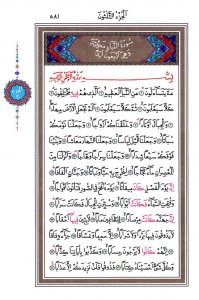 الجزء الثلاثون
٥٨١
سورة النبأ مكية
وهي اربعون اية
بِسْمِ اللّٰهِ الرَّحْمٰنِ الرَّحِيمِ
عَمَّ يَتَسَاءَلُونَ عَنِ النَّبَإِ الْعَظِيمِ الَّذِي هُمْ فِيهِ مُخْتَلِفُونَ
كَلَّا سَيَعْلَمُونَ ثُمَّ كَلَّا سَيَعْلَمُونَ أَلَمْ نَجْعَلِ الْأَرْضَ مِهَادًا
وَالْجِبَالَ أَوْتَادًا وَخَلَقْنَاكُمْ أَزْوَاجًا وَجَعَلْنَا نَوْمَكُمْ
سُبَاتًا وَجَعَلْنَا اللَّيْلَ لِبَاسًا وَجَعَلْنَا النَّهَارَ مَعَاشًا
وَبَنَيْنَا فَوْقَكُمْ سَبْعًا شِدَادًا وَجَعَلْنَا سِرَاجًا وَهَّاجًا
وَأَنْزَلْنَا مِنَ الْمُعْصِرَاتِ مَاءً ثَجَّاجًا لِنُخْرِجَ بِهِ حَبًّا وَنَبَاتًا وَجَنَّاتٍ أَلْفَافًا
إِنَّ يَوْمَ الْفَصْلِ كَانَ مِيقَاتًا يَوْمَ يُنْفَخُ فِي الصُّورِ فَتَأْتُونَ أَفْوَاجًا
وَفُتِحَتِ السَّمَاءُ فَكَانَتْ أَبْوَابًا وَسُيِّرَتِ الْجِبَالُ فَكَانَتْ سَرَابًا
إِنَّ جَهَنَّمَ كَانَتْ مِرْصَادًا لِلطَّاغِينَ مَآبًا لَابِثِينَ فِيهَا أَحْقَابًا
لَا يَذُوقُونَ فِيهَا بَرْدًا وَلَا شَرَابًا إِلَّا حَمِيمًا وَغَسَّاقًا جَزَاءً وِفَاقًا
إِنَّهُمْ كَانُوا لَا يَرْجُونَ حِسَابًا وَكَذَّبُوا بِآيَاتِنَا كِذَّابًا
وَكُلَّ شَيْءٍ أَحْصَيْنَاهُ كِتَابًا فَذُوقُوا فَلَنْ نَزِيدَكُمْ إِلَّا عَذَابًا